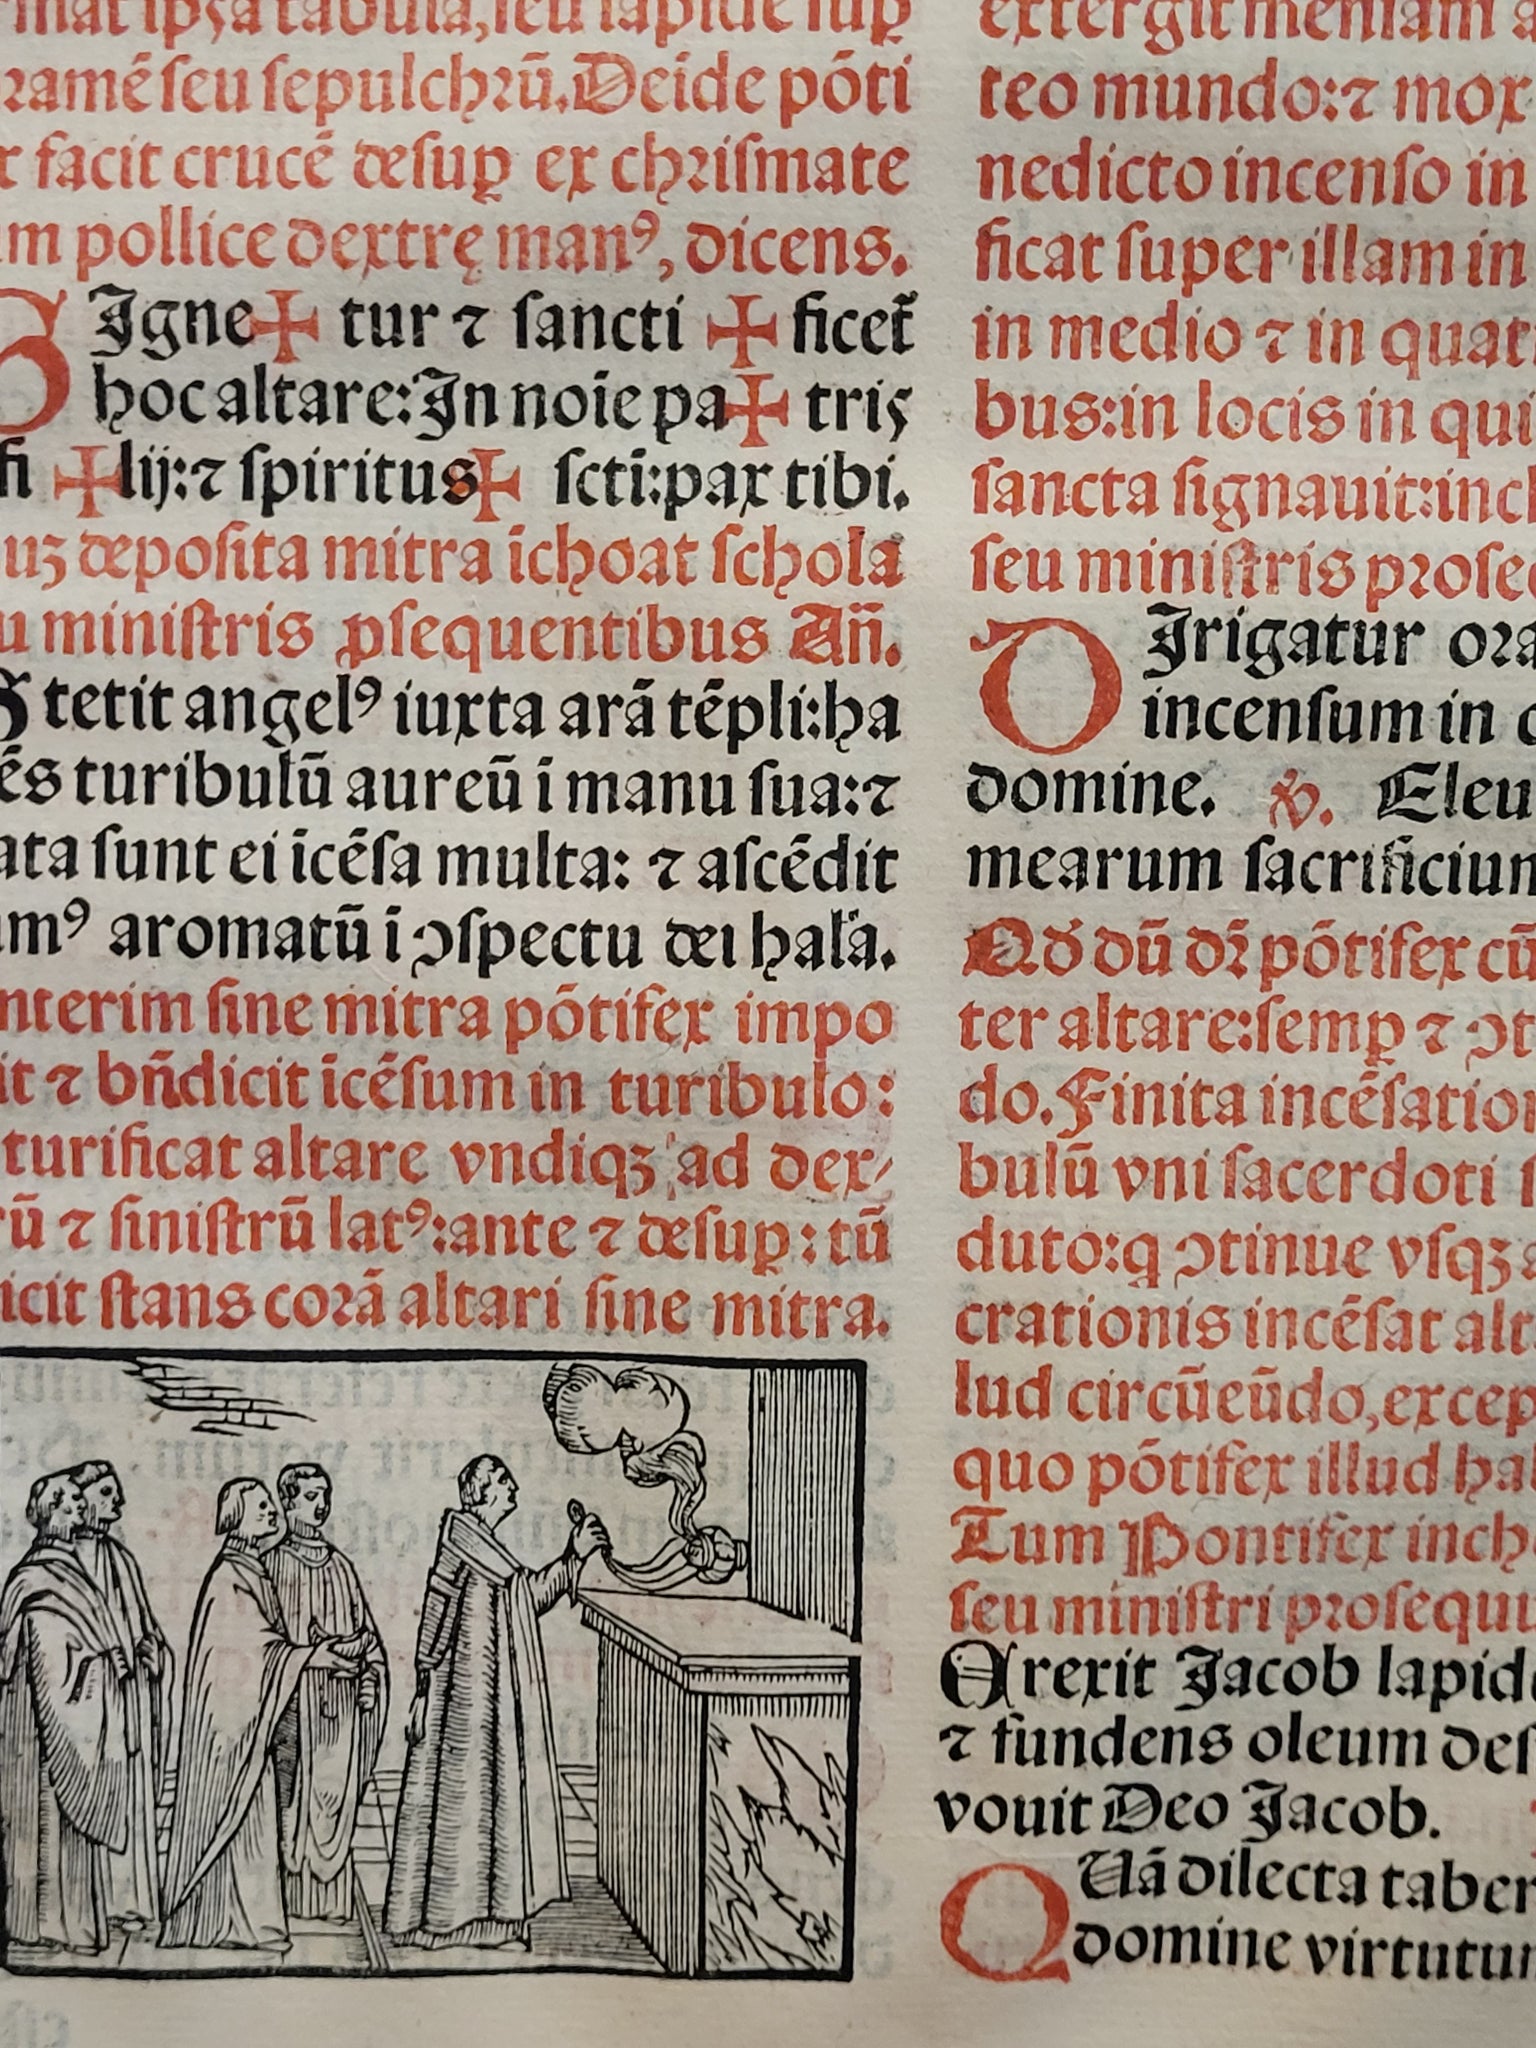 mat ipsa tabula, seu lapide sup
ramē seu sepulchrū. Deide pōti
facit crucē desuꝑ ex chrismate
pollice dextrę manꝰ, dicens.
SIgne✠ tur ⁊ sancti ✠ ficet̄
hoc altare: In noie pa✠ tris
fi ✠lij: ⁊ spiritus✠ scti̅: pax tibi.
deposita mitra īchoat schola
ministris ꝓsequentibus An̄.
Stetit angelꝰ iuxta arā tēpli: ha
ēs turibulū aureū ī manu sua: ⁊
ata sunt ei īcēsa multa: ⁊ ascēdit
umꝰ aromatū ī ↄspectu dei hal̄a.
nterim sine mitra pōtifex impo
it ⁊ bn̄dicit īcēsum in turibulo:
turificat altare vndiqꝫ ad dex⸗
rū ⁊ sinistrū latꝰ: ante ⁊ desuꝑ: tū
icit stans corā altari sine mitra.
extergit mensam a
teo mundo: ⁊ mox
nedicto incenso in
ficat super illam in
in medio ⁊ in quat
bus: in locis in qui
sancta signauit: inch
seu ministris prose
DIrigatur ora
incensum in c
domine. ℣. Eleu
mearum sacrificium
Qd̄ dū dr̄ pōtifex cū
ter altare: semꝑ ⁊ ↄt
do. Finita incēsation
bulū vni sacerdoti s
duto: q ↄtinue vsqꝫ
crationis incēsat alt
lud circūeūdo, excep
quo pōtifex illud ha
Tum Pontifex inch
seu ministri prosequu
Arexit Jacob lapid
⁊ fundens oleum des
vouit Deo Jacob.
QUā dilecta taber
domine virtutum